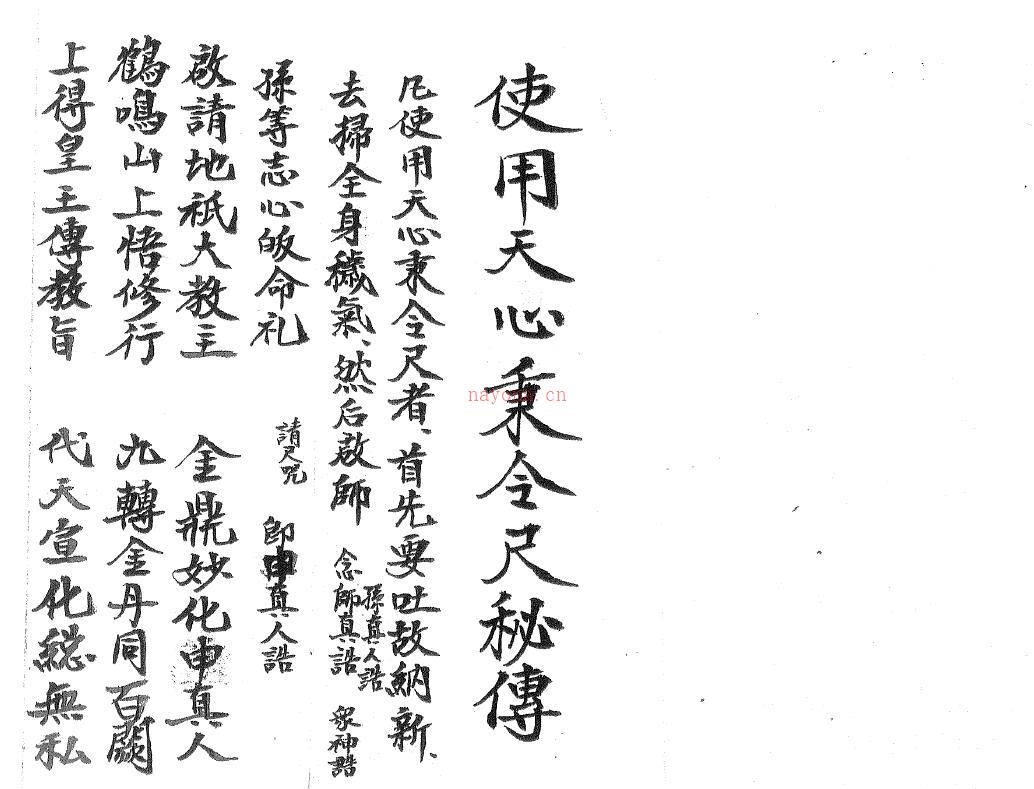 使用天心秉令尺秘傳
凡使用天心秉令尺者、首先要吐故納新、
去掃全身穢氣、然后啟師
孫真人誥
念師真誥 衆神誥
孫等志心皈命礼
請尺咒 即申真人誥
啟請地祇大教主 金鼎妙化申真人
鶴鳴山上悟修行 九轉金丹同百闕
上得皇王傳教旨 代天宣化総無私